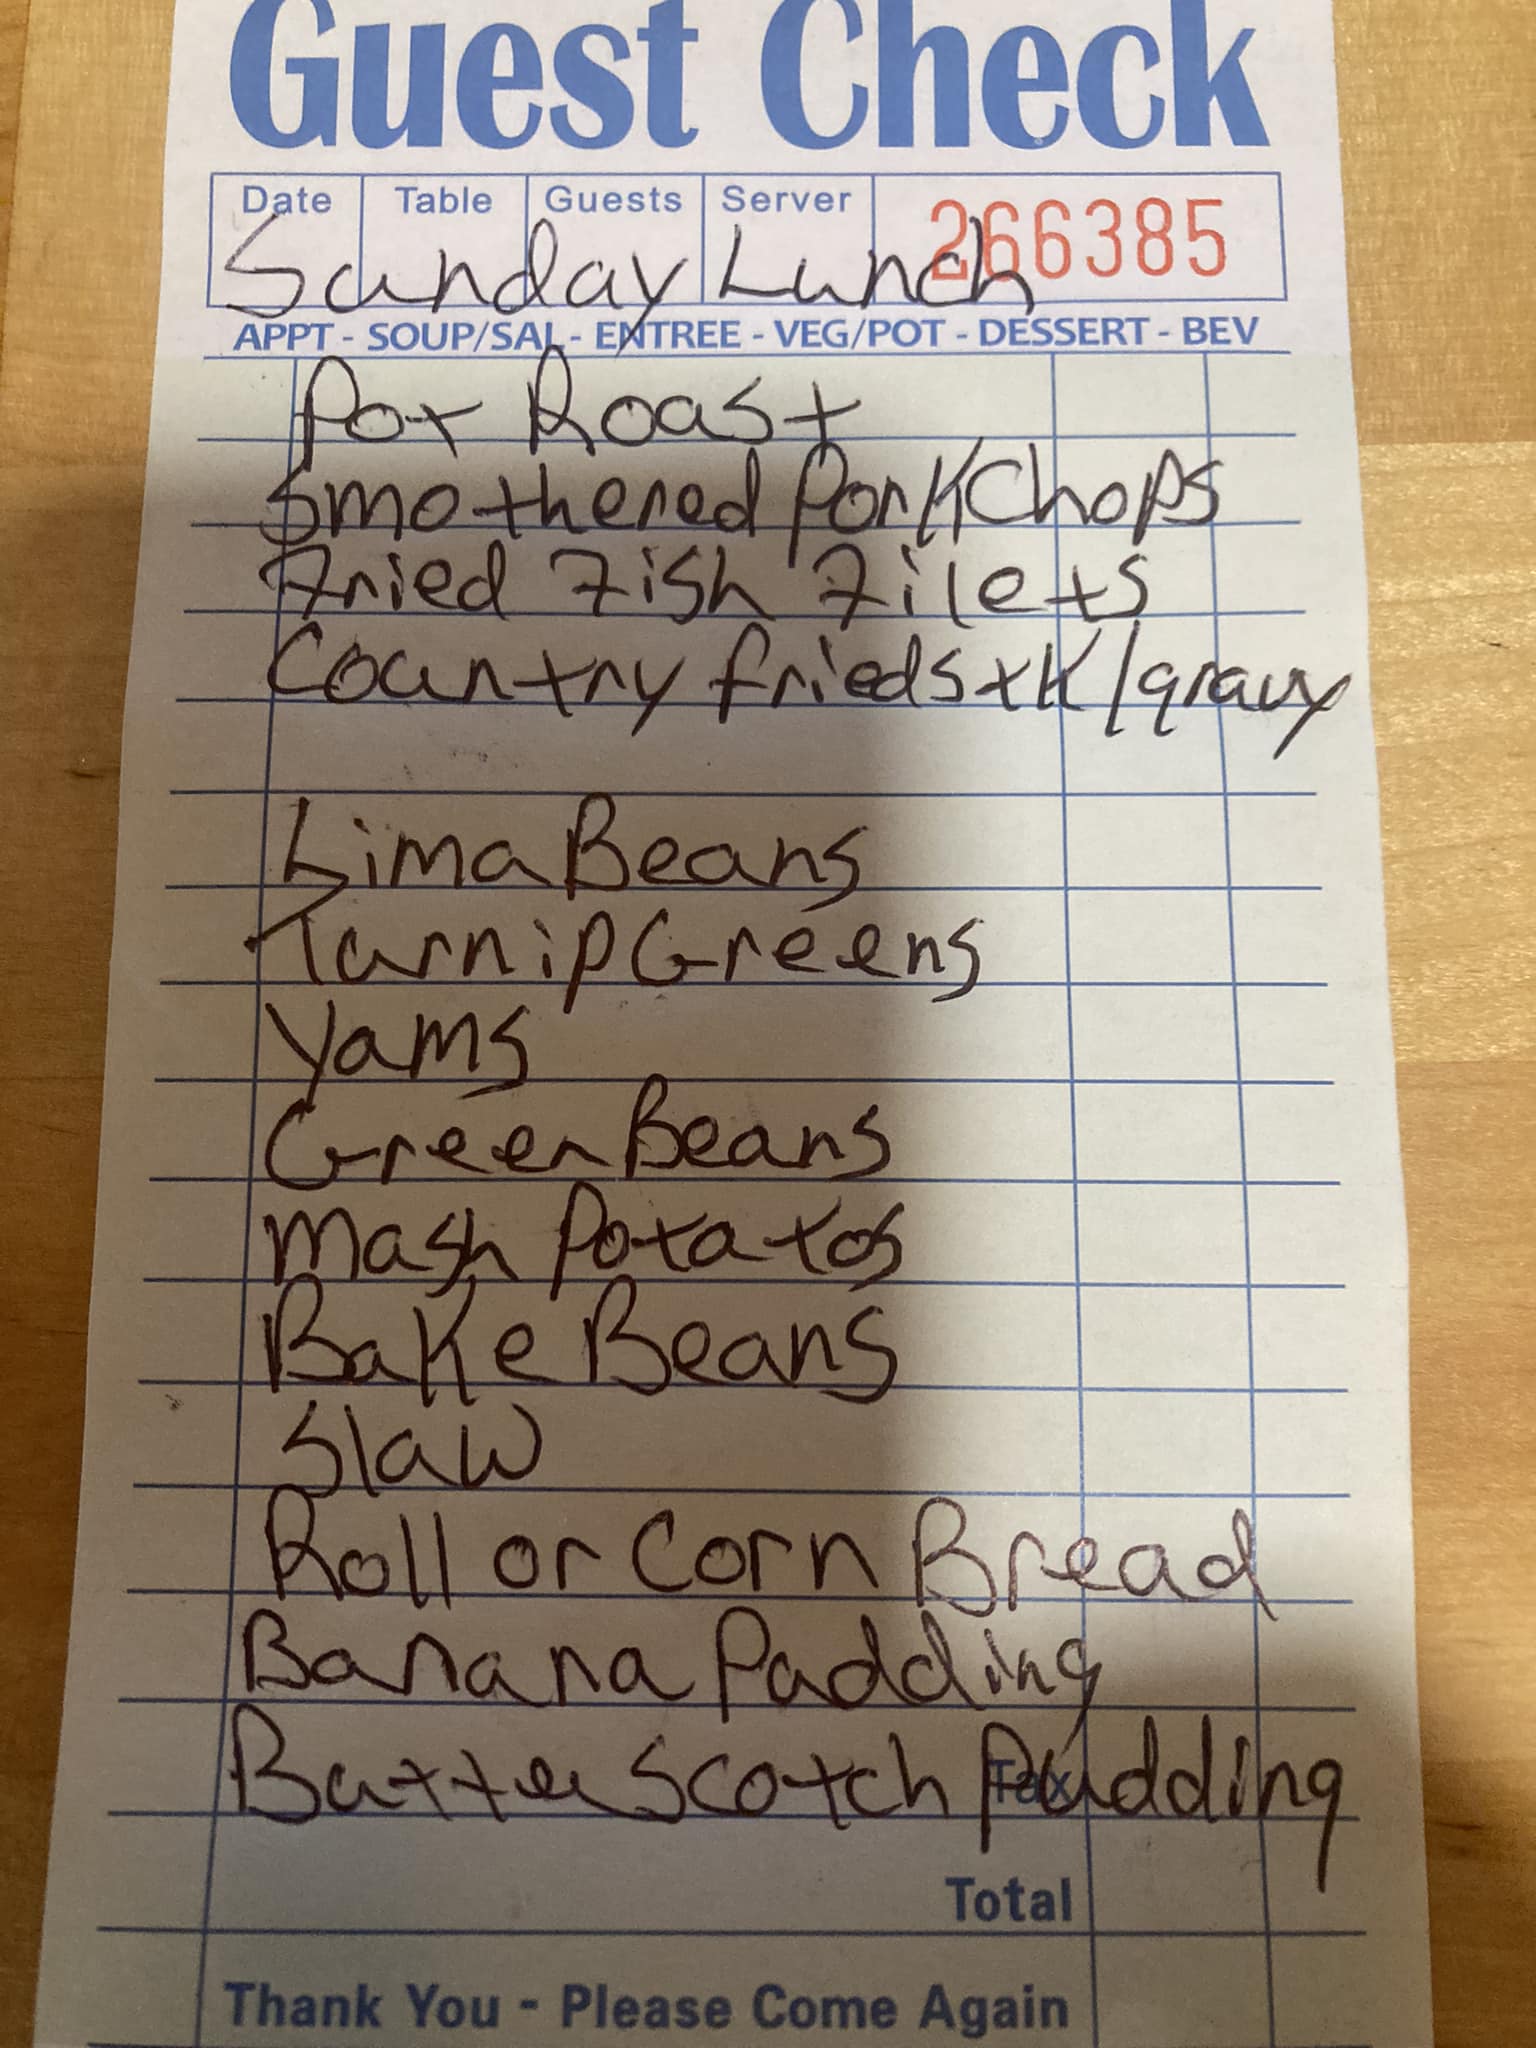 Guest Check
Date Table Guests Server 266385
Sunday Lunch
APPT - SOUP/SAL - ENTREE - VEG/POT - DESSERT - BEV
Pot Roast
Smothered Pork Chops
Fried Fish Filets
Country fried stk/gravy
Lima Beans
Turnip Greens
Yams
Green Beans
Mash Potatos
Bake Beans
Slaw
Roll or Corn Bread
Banana Pudding
Butter Scotch Pudding
Tax
Total
Thank You - Please Come Again